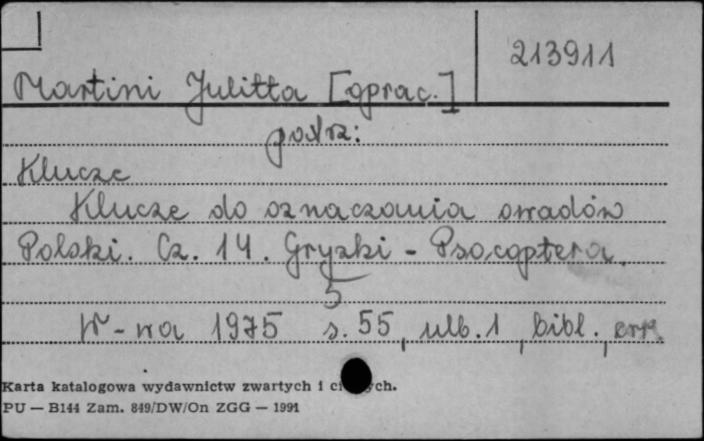 213911
Martini Julitta [oprac.]
patrz:
Klucze
Klucze do oznaczania owadów
Polski. Cz. 14. Gryzki - Psocoptera.
5
W-wa 1975 s. 55, ulb. 1, bibl.,
Karta katalogowa wydawnictw zwartych i
PU — B144 Zam. 849/DW/On ZGG — 1991